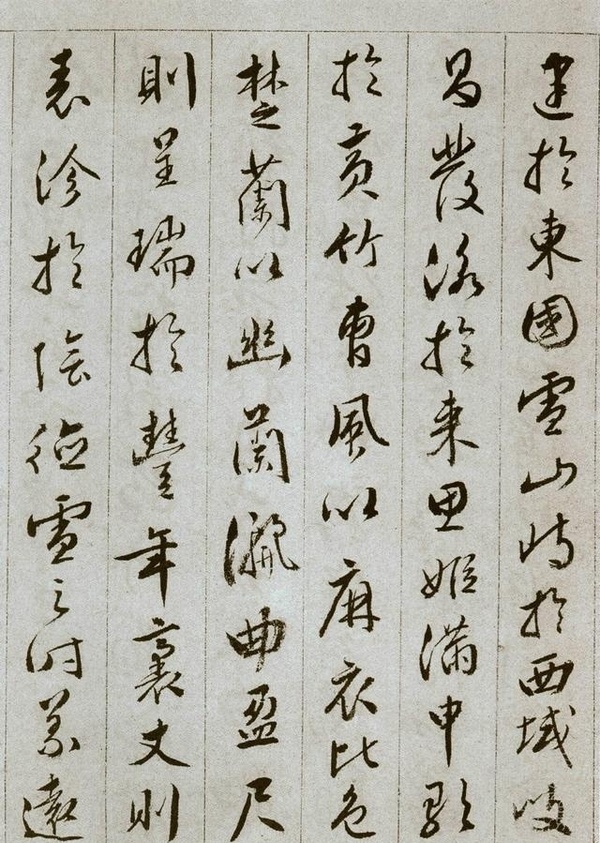 建於東國雪山峙於西域岐
昌發詠於來思姬滿申歌
於黃竹曹風以麻衣比色
楚謠以幽蘭儷曲盈尺
則呈瑞於豐年袤丈則
表沴於陰德雪之時義遠